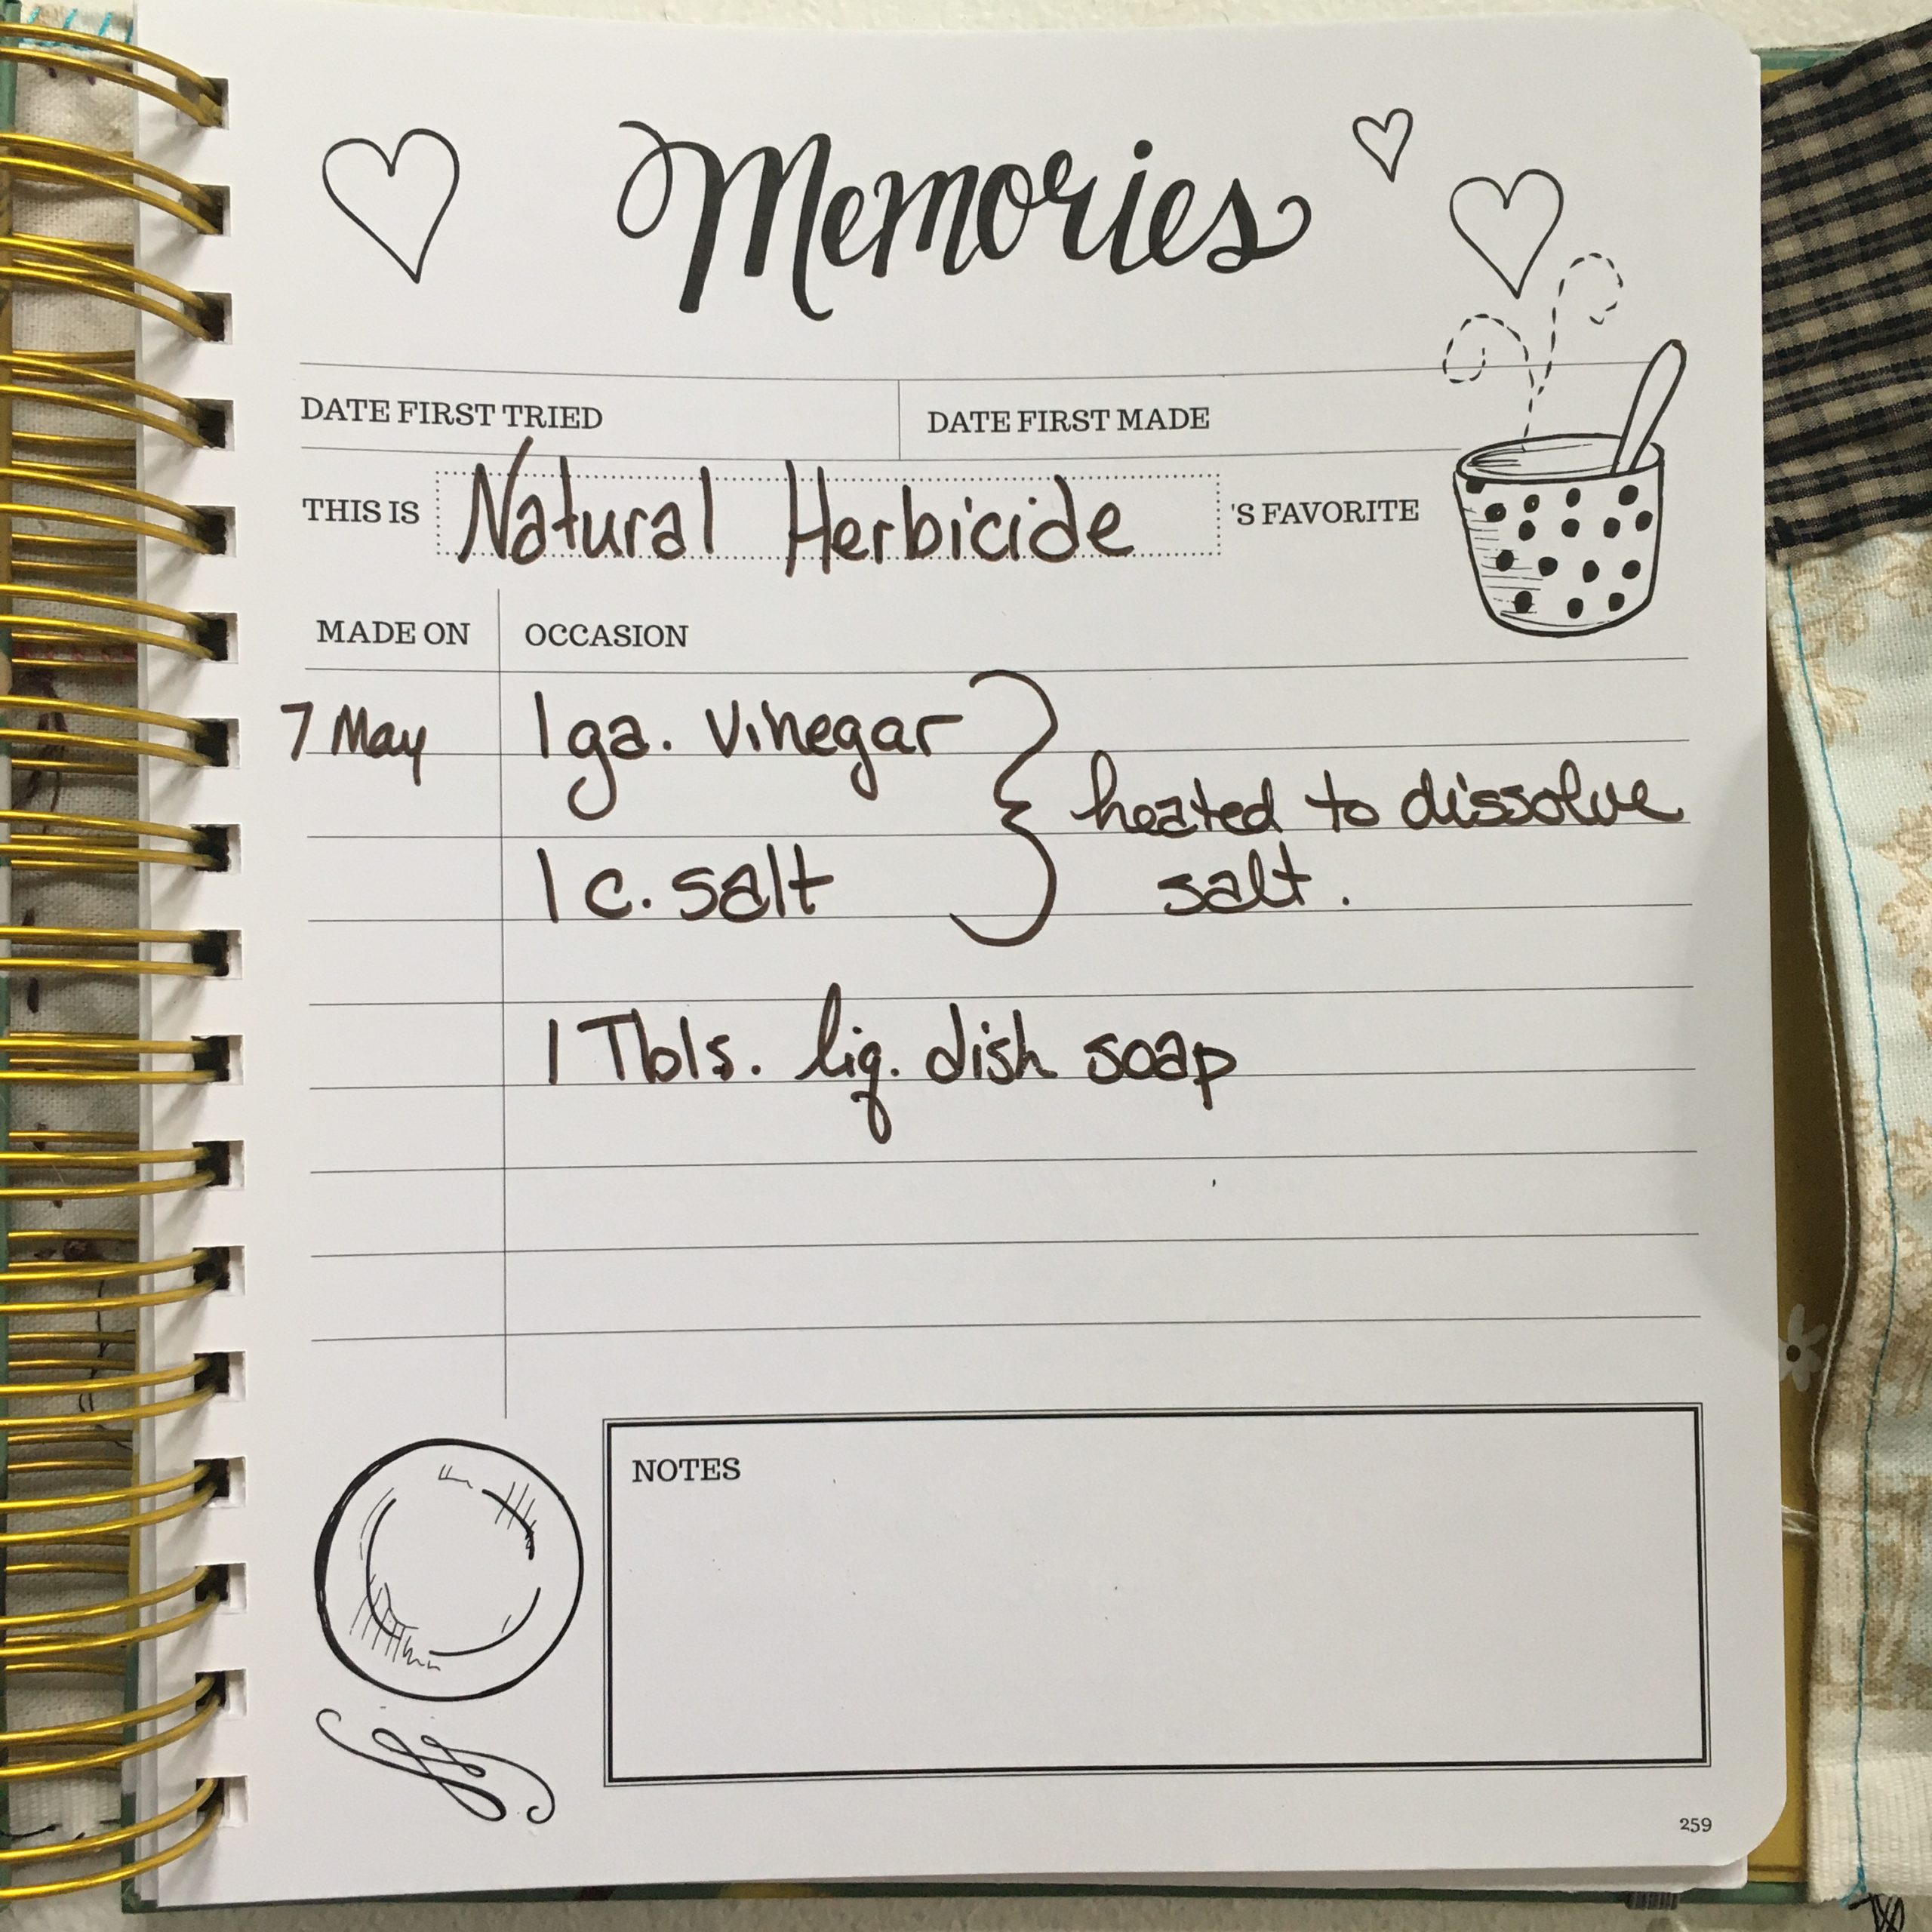 Memories
DATE FIRST TRIED DATE FIRST MADE
THIS IS Natural Herbicide 'S FAVORITE
MADE ON OCCASION
7 May 1 ga. vinegar
heated to dissolve
1 c. salt salt.
1 Tbls. liq. dish soap
NOTES
259